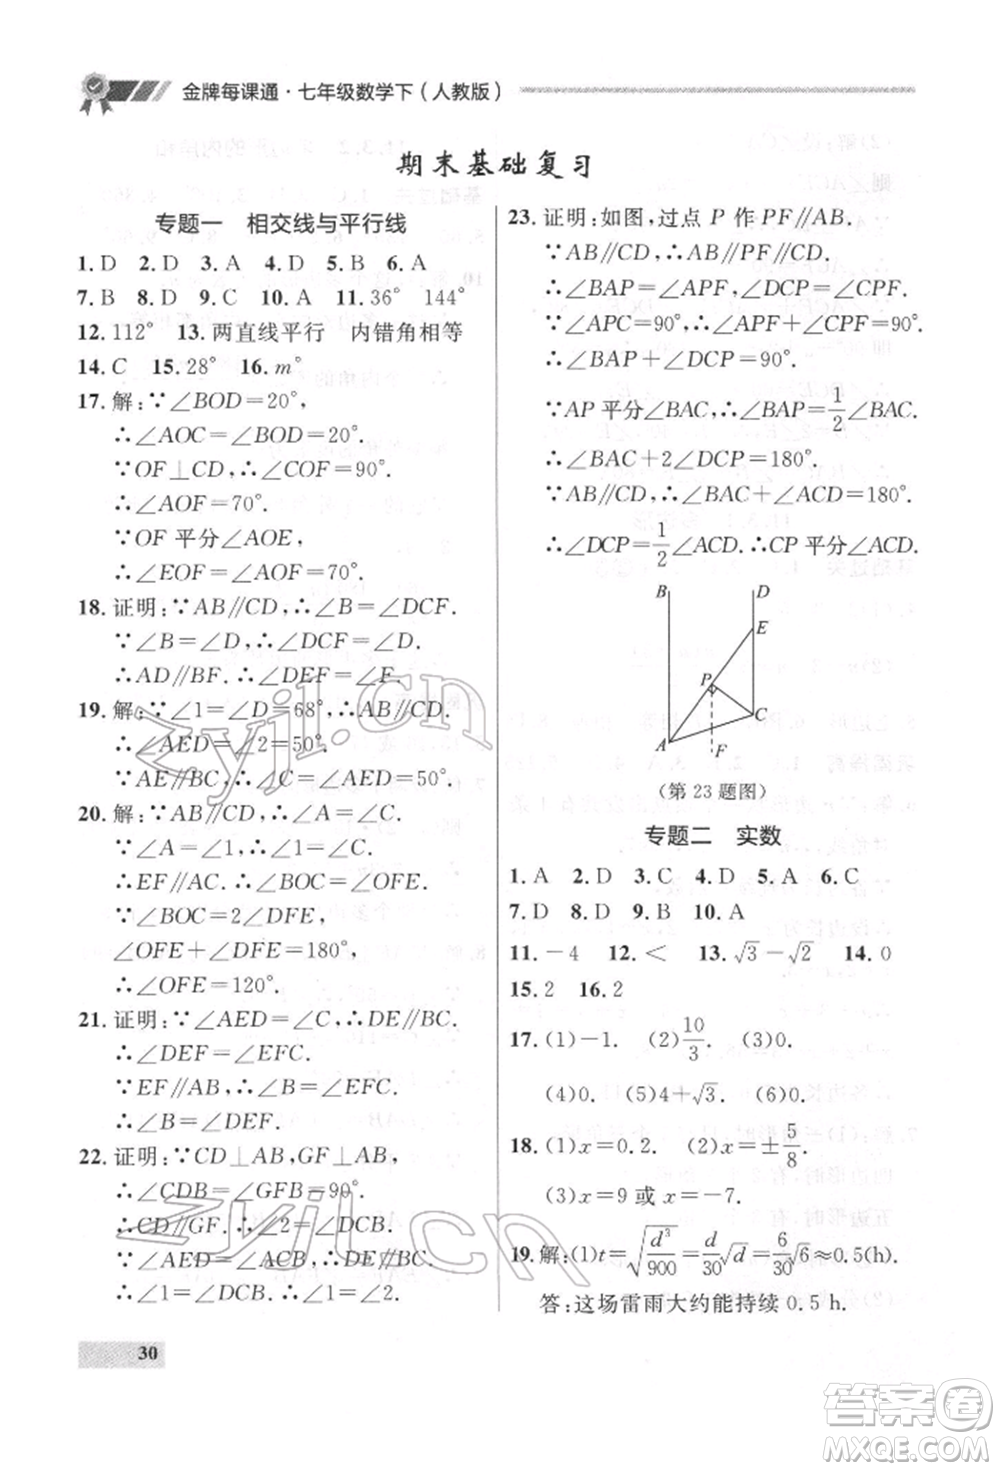 金牌每课通·七年级数学下(人教版)
期末基础复习
专题一 相交线与平行线
1. D 2. D 3. A 4. D 5. B 6. A
7. B 8. D 9. C 10. A 11. 36° 144°
12. 112° 13. 两直线平行 内错角相等
14. C 15. 28° 16. m°
17. 解:∵∠BOD=20°,
∴∠AOC=∠BOD=20°.
∵OF⊥CD,∴∠COF=90°.
∴∠AOF=70°.
∵OF 平分∠AOE,
∴∠EOF=∠AOF=70°.
18. 证明:∵AB∥CD,∴∠B=∠DCF.
∵∠B=∠D,∴∠DCF=∠D.
∴AD∥BF.∴∠E=∠F.
19. 解:∵∠1=∠D=68°,
∴∠AED=∠2=50°.
∵AE∥BC,∴∠C=∠AED=50°.
20. 解:∵AB∥CD,∴∠A=∠C.
∵∠A=∠1,∴∠C=∠1.
∴EF∥AC.∴∠BOC=∠OFE.
∵∠BOC=2∠DFE,
∠OFE+∠DFE=180°,
∴∠OFE=120°.
21. 证明:∵∠AED=∠C,∴DE∥BC.
∴∠DEF=∠EFC.
∵EF∥AB,∴∠B=∠EFC.
∴∠B=∠DEF.
22. 证明:∵CD⊥AB,GF⊥AB,
∴∠CDB=∠GFB=90°.
∴CD∥GF.∴∠2=∠DCB.
∵∠AED=∠ACB,∴DE∥BC.
∴∠1=∠DCB.∴∠1=∠2.
23. 证明:如图,过点 P 作 PF∥AB.
∵AB∥CD,∴AB∥PF∥CD.
∴∠BAP=∠APF,∠DCP=∠CPF.
∵∠APC=90°,∴∠APF+∠CPF=90°.
∴∠BAP+∠DCP=90°.
∵AP 平分∠BAC,∴∠BAP=1/2∠BAC.
∴∠BAC+2∠DCP=180°.
∵AB∥CD,∴∠BAC+∠ACD=180°.
∴∠DCP=1/2∠ACD.∴CP 平分∠ACD.
B D
E
P
C
A F
(第 23 题图)
专题二 实数
1. A 2. D 3. C 4. D 5. A 6. C
7. D 8. D 9. B 10. A
11. −4 12. < 13. √3−√2 14. 0
15. 2 16. 2
17. (1)−1. (2)10/3. (3)0.
(4)0. (5)4+√3. (6)0.
18. (1)x=0.2. (2)x=±5/8.
(3)x=9 或 x=−7.
19. 解:(1)t=√(d³/900)=d/30√d=6/30√6≈0.5(h).
答:这场雷雨大约能持续 0.5 h.
30
zyjl.cn
zyjl.cn
答案圈
MXQE.COM